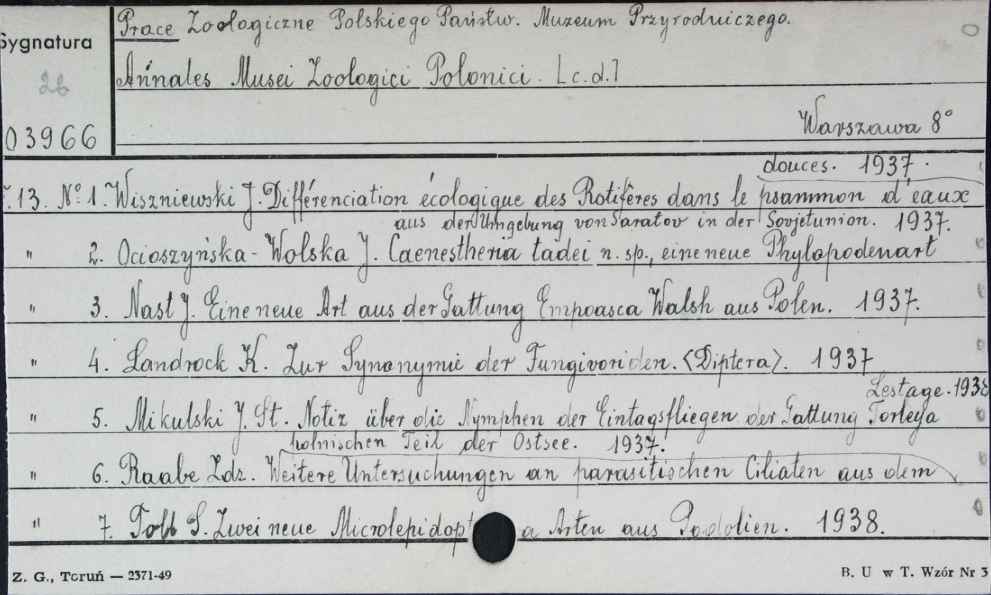 Prace Zoologiczne Polskiego Państw. Muzeum Przyrodniczego.
Sygnatura
26
Annales Musei Zoologici Polonici. [c.d.]
03966
Warszawa 8°
douces. 1937.
T.13. No 1. Wiszniewski J. Différenciation écologique des Rotifères dans le psammon d'eaux
aus der Umgebung von Saratov in der Sovjetunion. 1937.
" 2. Ocioszyńska-Wolska J. Caenestheria tadei n. sp., eine neue Phylopodenart
" 3. Nast J. Eine neue Art aus der Gattung Empoasca Walsh aus Polen. 1937.
" 4. Landrock K. Zur Synonymie der Fungivoriden. <Diptera>. 1937
Lestage. 1938
" 5. Mikulski J. St. Notiz über die Nymphen der Eintagsfliegen der Gattung Torleya
polnischen Teil der Ostsee. 1937.
" 6. Raabe Zdz. Weitere Untersuchungen an parasitischen Ciliaten aus dem
" 7. Toll S. Zwei neue Microlepidop a Arten aus Podolien. 1938.
Z. G., Toruń — 2371-49
B. U w T. Wzór Nr 3